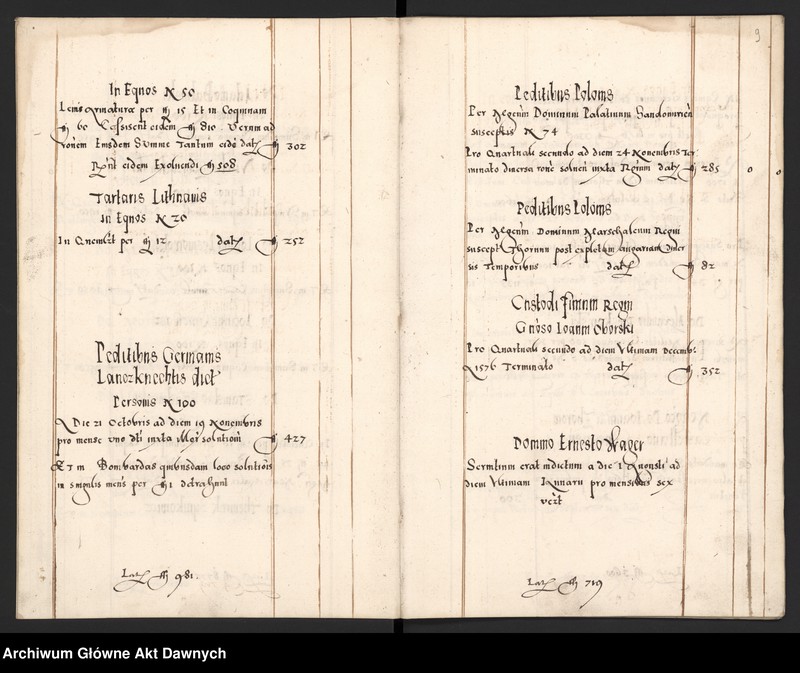 In Eqnos N 50
Lenis Armaturæ per fl 15 Et in Coquinam
fl 60 Cessissent eidem fl 810 Verum ad
ronem Eiusdem Summe Tantum eidē datz fl 302
Rānt eidem Exoluendi fl 508
Tartaris Lithuanis
in Eqnos N 20
In Quemlzt per fl 12 datz fl 252
Peditibus Germanis
Lanczknechtis dict
Personis N 100
A Die 21 Octobris ad diem 19 Nouembris
pro mense vno dti iuxta illor solutiom fl 427
Et in Bombardas quibusdam loco solutiois
in singulis mens per fl 1 detrahunt
Latz fl 981
9
Peditibus Polonis
Per Magcum Dominum Palatinum Sandomirien
susceptis N 74
Pro Quartuali secundo ad diem 24 Nouembris Ter
minato diuersa ronē soluen iuxta Regrum datz fl 285
Peditibus Polonis
Per Magcum Dominum Marschalcum Regni
suscept Thorunii post expletam angariam diuer
sis Temporibus datz fl 82
Custodi finium Regni
Gnoso Ioanni Oborski
Pro Quartuali secundo ad diem Vltimam Decembr
A 1576 Terminato datz fl 352
Domino Ernesto Wager
Seruitium erat indictum a die 1 Augusti ad
diem Vltimam Ianuarii pro mensibus sex
vczt
Latz fl 719
Archiwum Główne Akt Dawnych